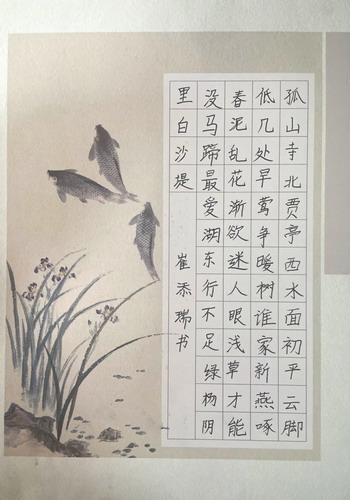 孤山寺北贾亭西水面初平云脚
低几处早莺争暖树谁家新燕啄
春泥乱花渐欲迷人眼浅草才能
没马蹄最爱湖东行不足绿杨阴
里白沙堤 崔添瑞书